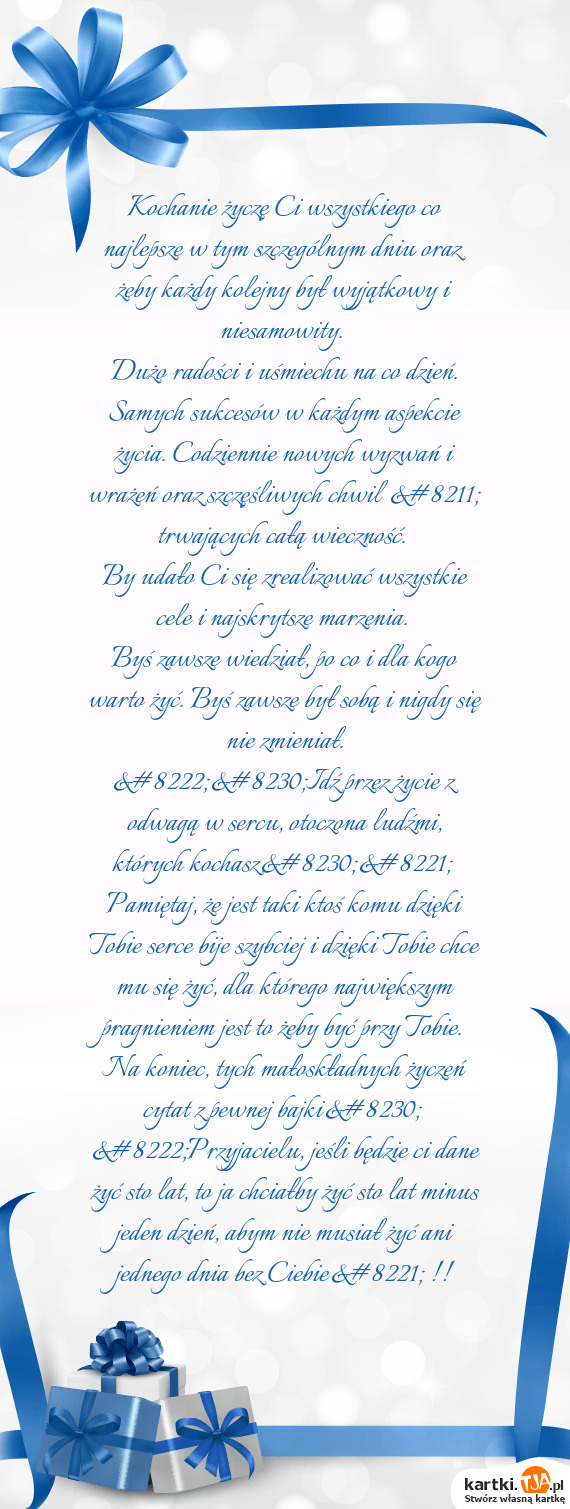 Kochanie życzę Ci wszystkiego co
najlepsze w tym szczególnym dniu oraz
żeby każdy kolejny był wyjątkowy i
niesamowity.
Dużo radości i uśmiechu na co dzień.
Samych sukcesów w każdym aspekcie
życia. Codziennie nowych wyzwań i
wrażeń oraz szczęśliwych chwil &#8211;
trwających całą wieczność.
By udało Ci się zrealizować wszystkie
cele i najskrytsze marzenia.
Byś zawsze wiedział, po co i dla kogo
warto żyć. Byś zawsze był sobą i nigdy się
nie zmieniał.
&#8222;&#8230;Idź przez życie z
odwagą w sercu, otoczona ludźmi,
których kochasz&#8230;&#8221;
Pamiętaj, że jest taki ktoś komu dzięki
Tobie serce bije szybciej i dzięki Tobie chce
mu się żyć, dla którego największym
pragnieniem jest to żeby być przy Tobie.
Na koniec, tych małoskładnych życzeń
cytat z pewnej bajki&#8230;
&#8222;Przyjacielu, jeśli będzie ci dane
żyć sto lat, to ja chciałby żyć sto lat minus
jeden dzień, abym nie musiał żyć ani
jednego dnia bez Ciebie&#8221; !!
kartki.TJA.pl
Stwórz własną kartkę